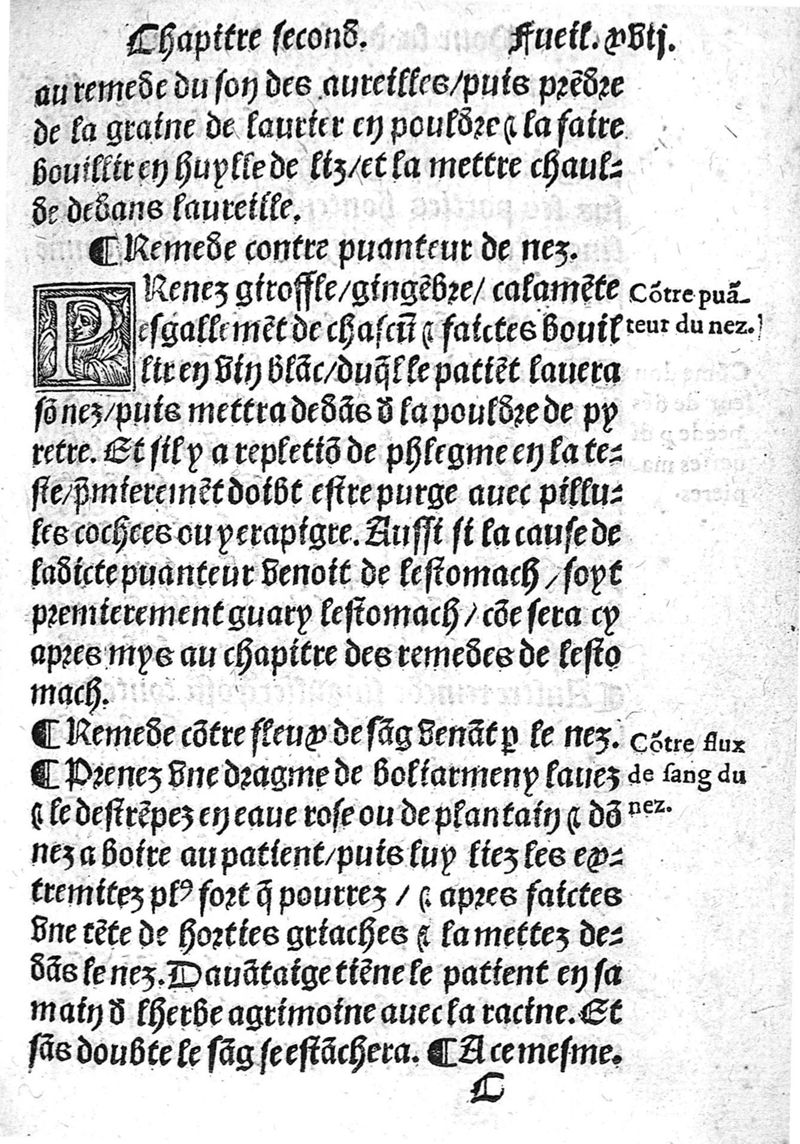 Chapitre second. Fueil. xvij.
au remede du son des aureilles/puis prẽdre
de la graine de laurier en pouldre ⁊ la faire
bouillir en huylle de liz/et la mettre chaul-
de dedans laureille.
¶ Remede contre puanteur de nez.
PRenez giroffle/gingẽbre/ calamẽte
esgallemẽt de chascũ ⁊ faictes bouil
lir en vin blãc/duq̃l le patiẽt lauera
sõ nez/puis mettra dedãs d la pouldre de py
retre. Et sil y a repletiõ de phlegme en la te-
ste/p̃mieremẽt doibt estre purge auec pillu-
les cochees ou yerapigre. Aussi si la cause de
ladicte puanteur venoit de lestomach /soyt
premierement guary lestomach / cõe sera cy
apres mys au chapitre des remedes de lesto
mach.
Cõtre puã-
teur du nez.
¶ Remede cõtre fleux de sãg venãt ꝑ le nez.
¶ Prenez vne dragme de boliarmeny lauez
⁊ le destrẽpez en eaue rose ou de plantain ⁊ dõ
nez a boire au patient/puis luy liez les ex-
tremitez plꝰ fort q̃ pourrez / ⁊ apres faictes
vne tẽte de horties griaches ⁊ la mettez de-
dãs le nez. Dauãtaige tiẽne le patient en sa
main d lherbe agrimoine auec la racine. Et
sãs doubte le sãg se estãchera. ¶ A ce mesme.
Cõtre flux
de sang du
nez.
C